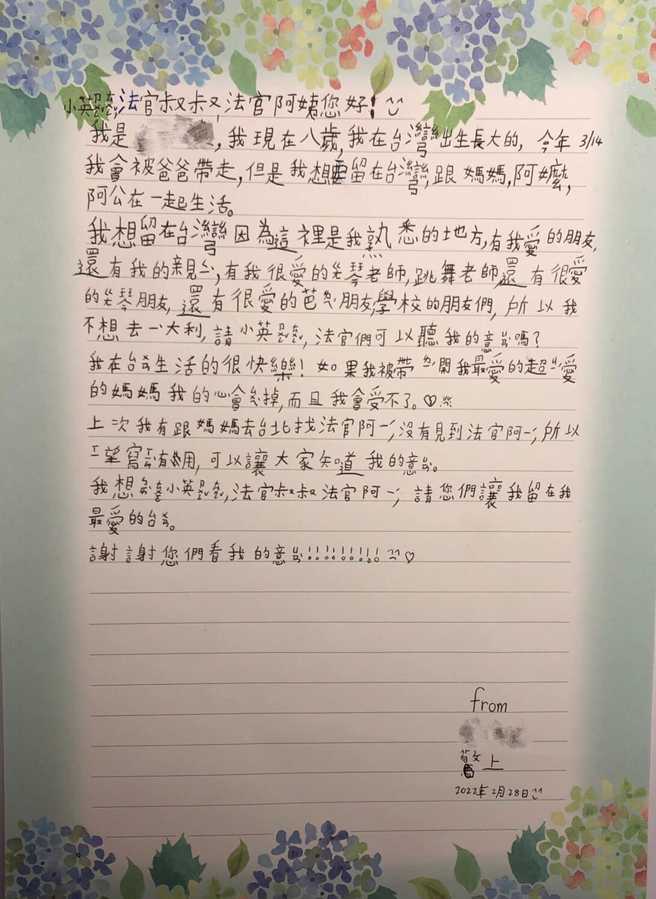 小英,法官叔叔,法官阿姨您好!
我是,我現在八歲,我在台灣出生長大的,今年3/14
我會被爸爸帶走,但是我想留在台灣,跟媽媽,阿嬤,
阿公在一起生活。
我想留在台灣因為這裡是我熟悉的地方,有我愛的朋友,
還有我的親,有我很愛的琴老師,跳舞老師還有很愛
的琴朋友,還有很愛的芭朋友,學校的朋友們,所以我
不想去一ˋ大利,請小英,法官們可以聽我的意ㄐㄧㄢˋ嗎?
我在台ㄨㄢ生活的很快樂!如果我被帶開我最愛的超愛
的媽媽我的心會掉,而且我會受不了。♡
上次我有跟媽媽去台北找法官阿一ˊ,沒有見到法官阿一ˊ,所以
ㄒㄧ望寫有用,可以讓大家知道我的意ㄐㄧㄢˋ。
我想小英,法官叔叔法官阿一ˊ,請您們讓我留在我
最愛的台ㄨㄢ。
謝謝您們看我的意ㄐㄧㄢˋ!!!!!!!!!♡
from
敬上
2022年2月28日